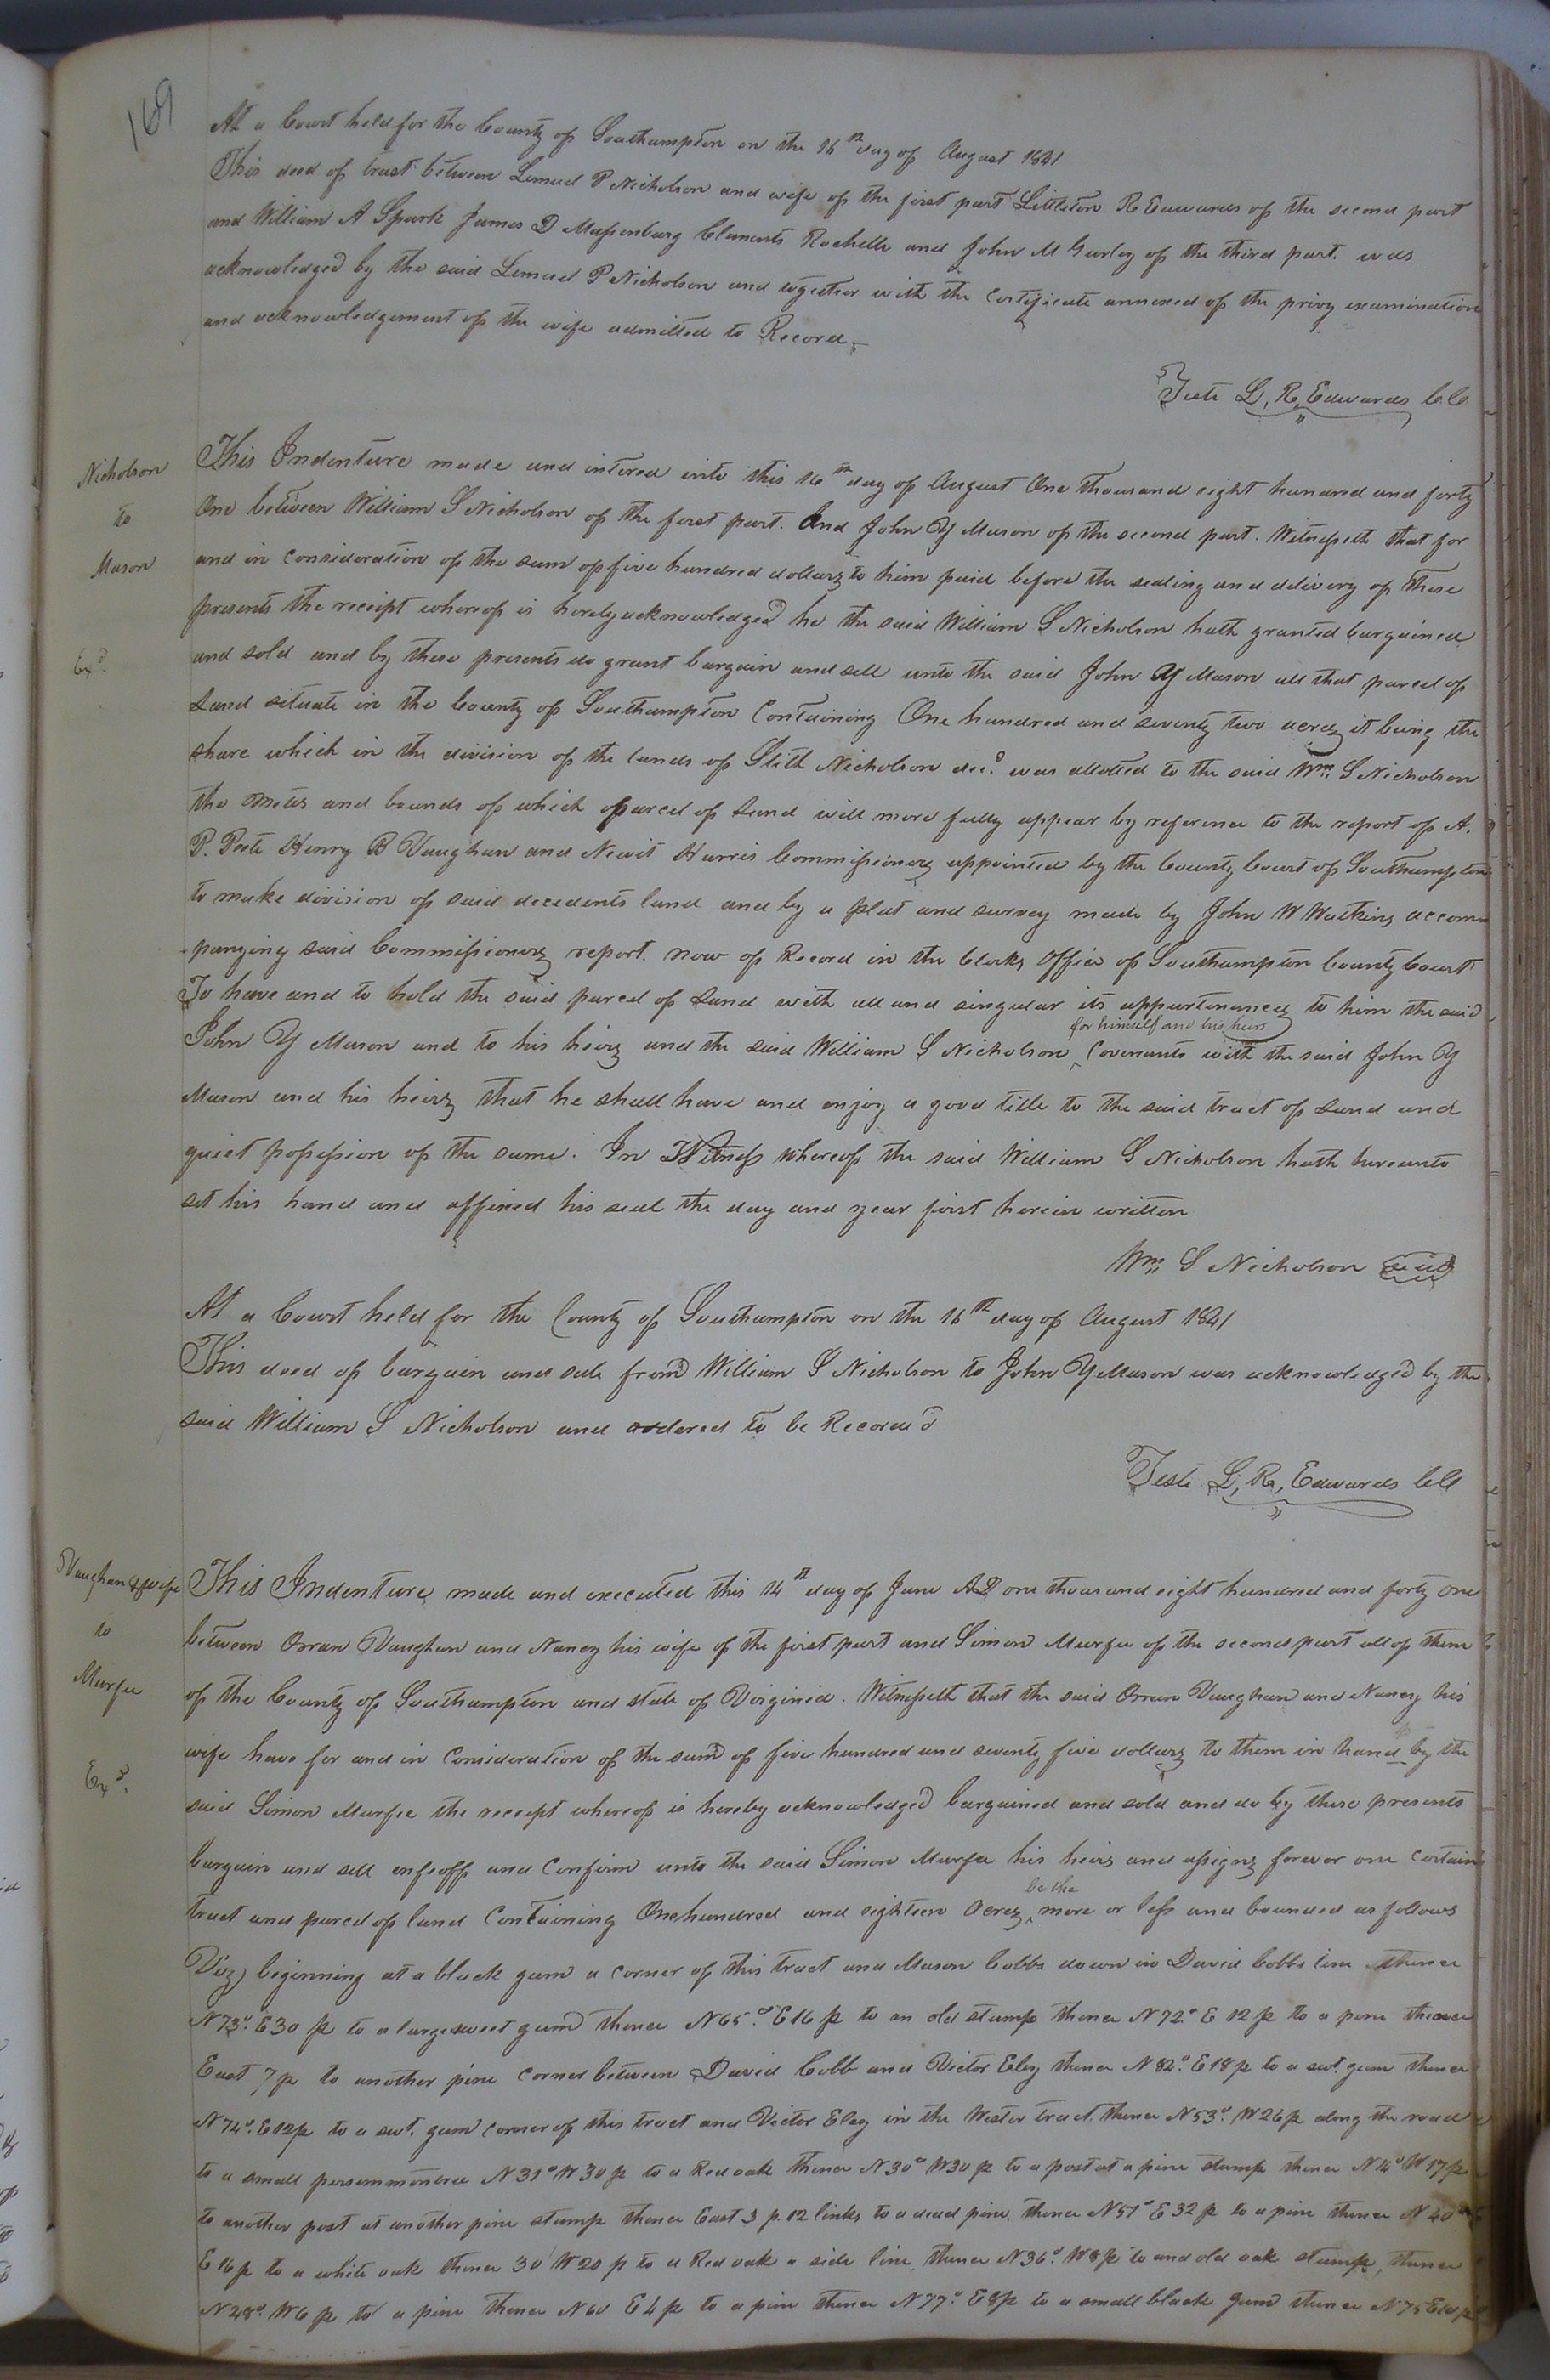 169
At a Court held for the County of Southampton on the 16th day of August 1841
This deed of trust between Lemuel P Nicholson and wife of the first part Littleton R Edwards of the second part
and William A Spark James D Massenburg Clements Rochelle and John M Gurley of the third part. was
acknowledged by the said Lemuel P Nicholson and together with the Certificate annexed of the privy examination
and acknowledgement of the wife admitted to Record,
Teste L, R, Edwards CC
Nicholson
to
Mason
Exd.
This Indenture made and intered into this 16th day of August One thousand eight hundred and forty
One between William S Nicholson of the first part. And John Y Mason of the second part. Witnesseth that for
and in Consideration of the sum of five hundred dollars to him paid before the sealing and delivery of these
presents the receipt whereof is hereby acknowledged he the said William S Nicholson hath granted bargained
and sold and by these presents do grant bargain and sell unto the said John Y Mason all that parcel of
Land situate in the County of Southampton Containing One hundred and seventy two acres it being the
share which in the division of the lands of Stith Nicholson decd. was allotted to the said Wm. S Nicholson
the metes and bounds of which parcel of Land will more fully appear by reference to the report of A.
P. Peete Henry B Vaughan and Newit Harris Commissioners appointed by the County Court of Southampton
to make division of said decedents land and by a plat and survey made by John W Watkins accom
panying said Commissioners report. now of Record in the Clerks Office of Southampton County Court
To have and to hold the said parcel of Land with all and singular its appurtenances to him the said
John Y Mason and to his heirs and the said William S Nicholson ^for himself and his heirs Covenants with the said John Y
Mason and his heirs that he shall have and enjoy a good title to the said tract of Land and
quiet possession of the same. In Witness whereof the said William S Nicholson hath hereunto
set his hand and affixed his seal the day and year first herein written
Wm. S Nicholson seal
At a Court held for the County of Southampton on the 16th day of August 1841
This deed of bargain and sale from William S Nicholson to John Y Mason was acknowledged by the
said William S Nicholson and ordered to be Record'd
Teste L, R, Edwards CC
Vaughan & wife
to
Murfee
Exd.
This Indenture made and executed this 14th day of June AD one thousand eight hundred and forty one
between Orran Vaughan and Nancy his wife of the first part and Simon Murfee of the second part all of them
of the County of Southampton and state of Virginia. Witnesseth that the said Orran Vaughan and Nancy his
wife have for and in Consideration of the sum of five hundred and seventy five dollars to them in hand by the
said Simon Murfee the receipt whereof is hereby acknowledged bargained and sold and do by these presents
bargain and sell enfeoff and Confirm unto the said Simon Murfee his heirs and assigns forever one Certain
tract and parcel of land Containing One hundred and eighteen Acres ^be the more or less and bounded as follows
Viz) beginning at a black gum a corner of this tract and Mason Cobbs down in David Cobbs line thence
N73°. E30 p to a large sweet gum thence N65°. E16 p to an old stump thence N72° E 12 p to a pine thence
East 7 p to another pine Corner between David Cobb and Victor Eley thence N 82°. E18 p to a swt. gum thence
N74°. E12p to a swt. gum corner of this tract and Victor Eley in the Wester tract. thence N53°. W26p along the road
to a small persemmon tree N31° W 30 p to a Red oak thence N30° W30 p to a post at a pine stump thence N14° W17p
to another post at another pine stump thence East 3 p. 12 links to a dead pine, thence N51° E 32 p to a pine thence N 40°
E 16p to a white oak thence 30 W20 p to a Red oak a side line, thence N36°. W8p to and old oak stump, thence
N28°. W6 p to a pine thence N60 E4p to a pine thence N77°. E8p to a small black gum thence N75 E10 p